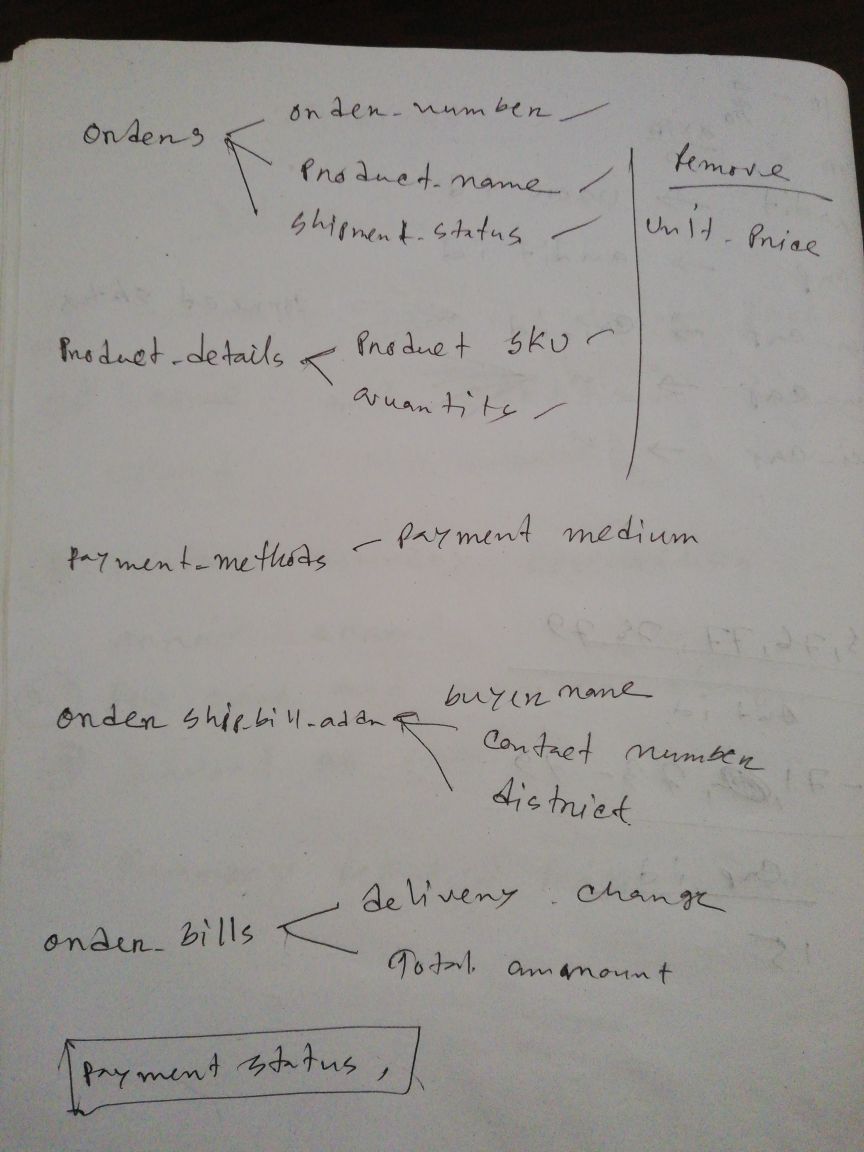 orders
order-number
product-name
shipment-status
remove
unit-price
product-details
product SKU
quantity
payment-methods
payment medium
order ship-bill-addr
buyer name
contact number
district
order-bills
delivery charge
Total ammount
payment status,